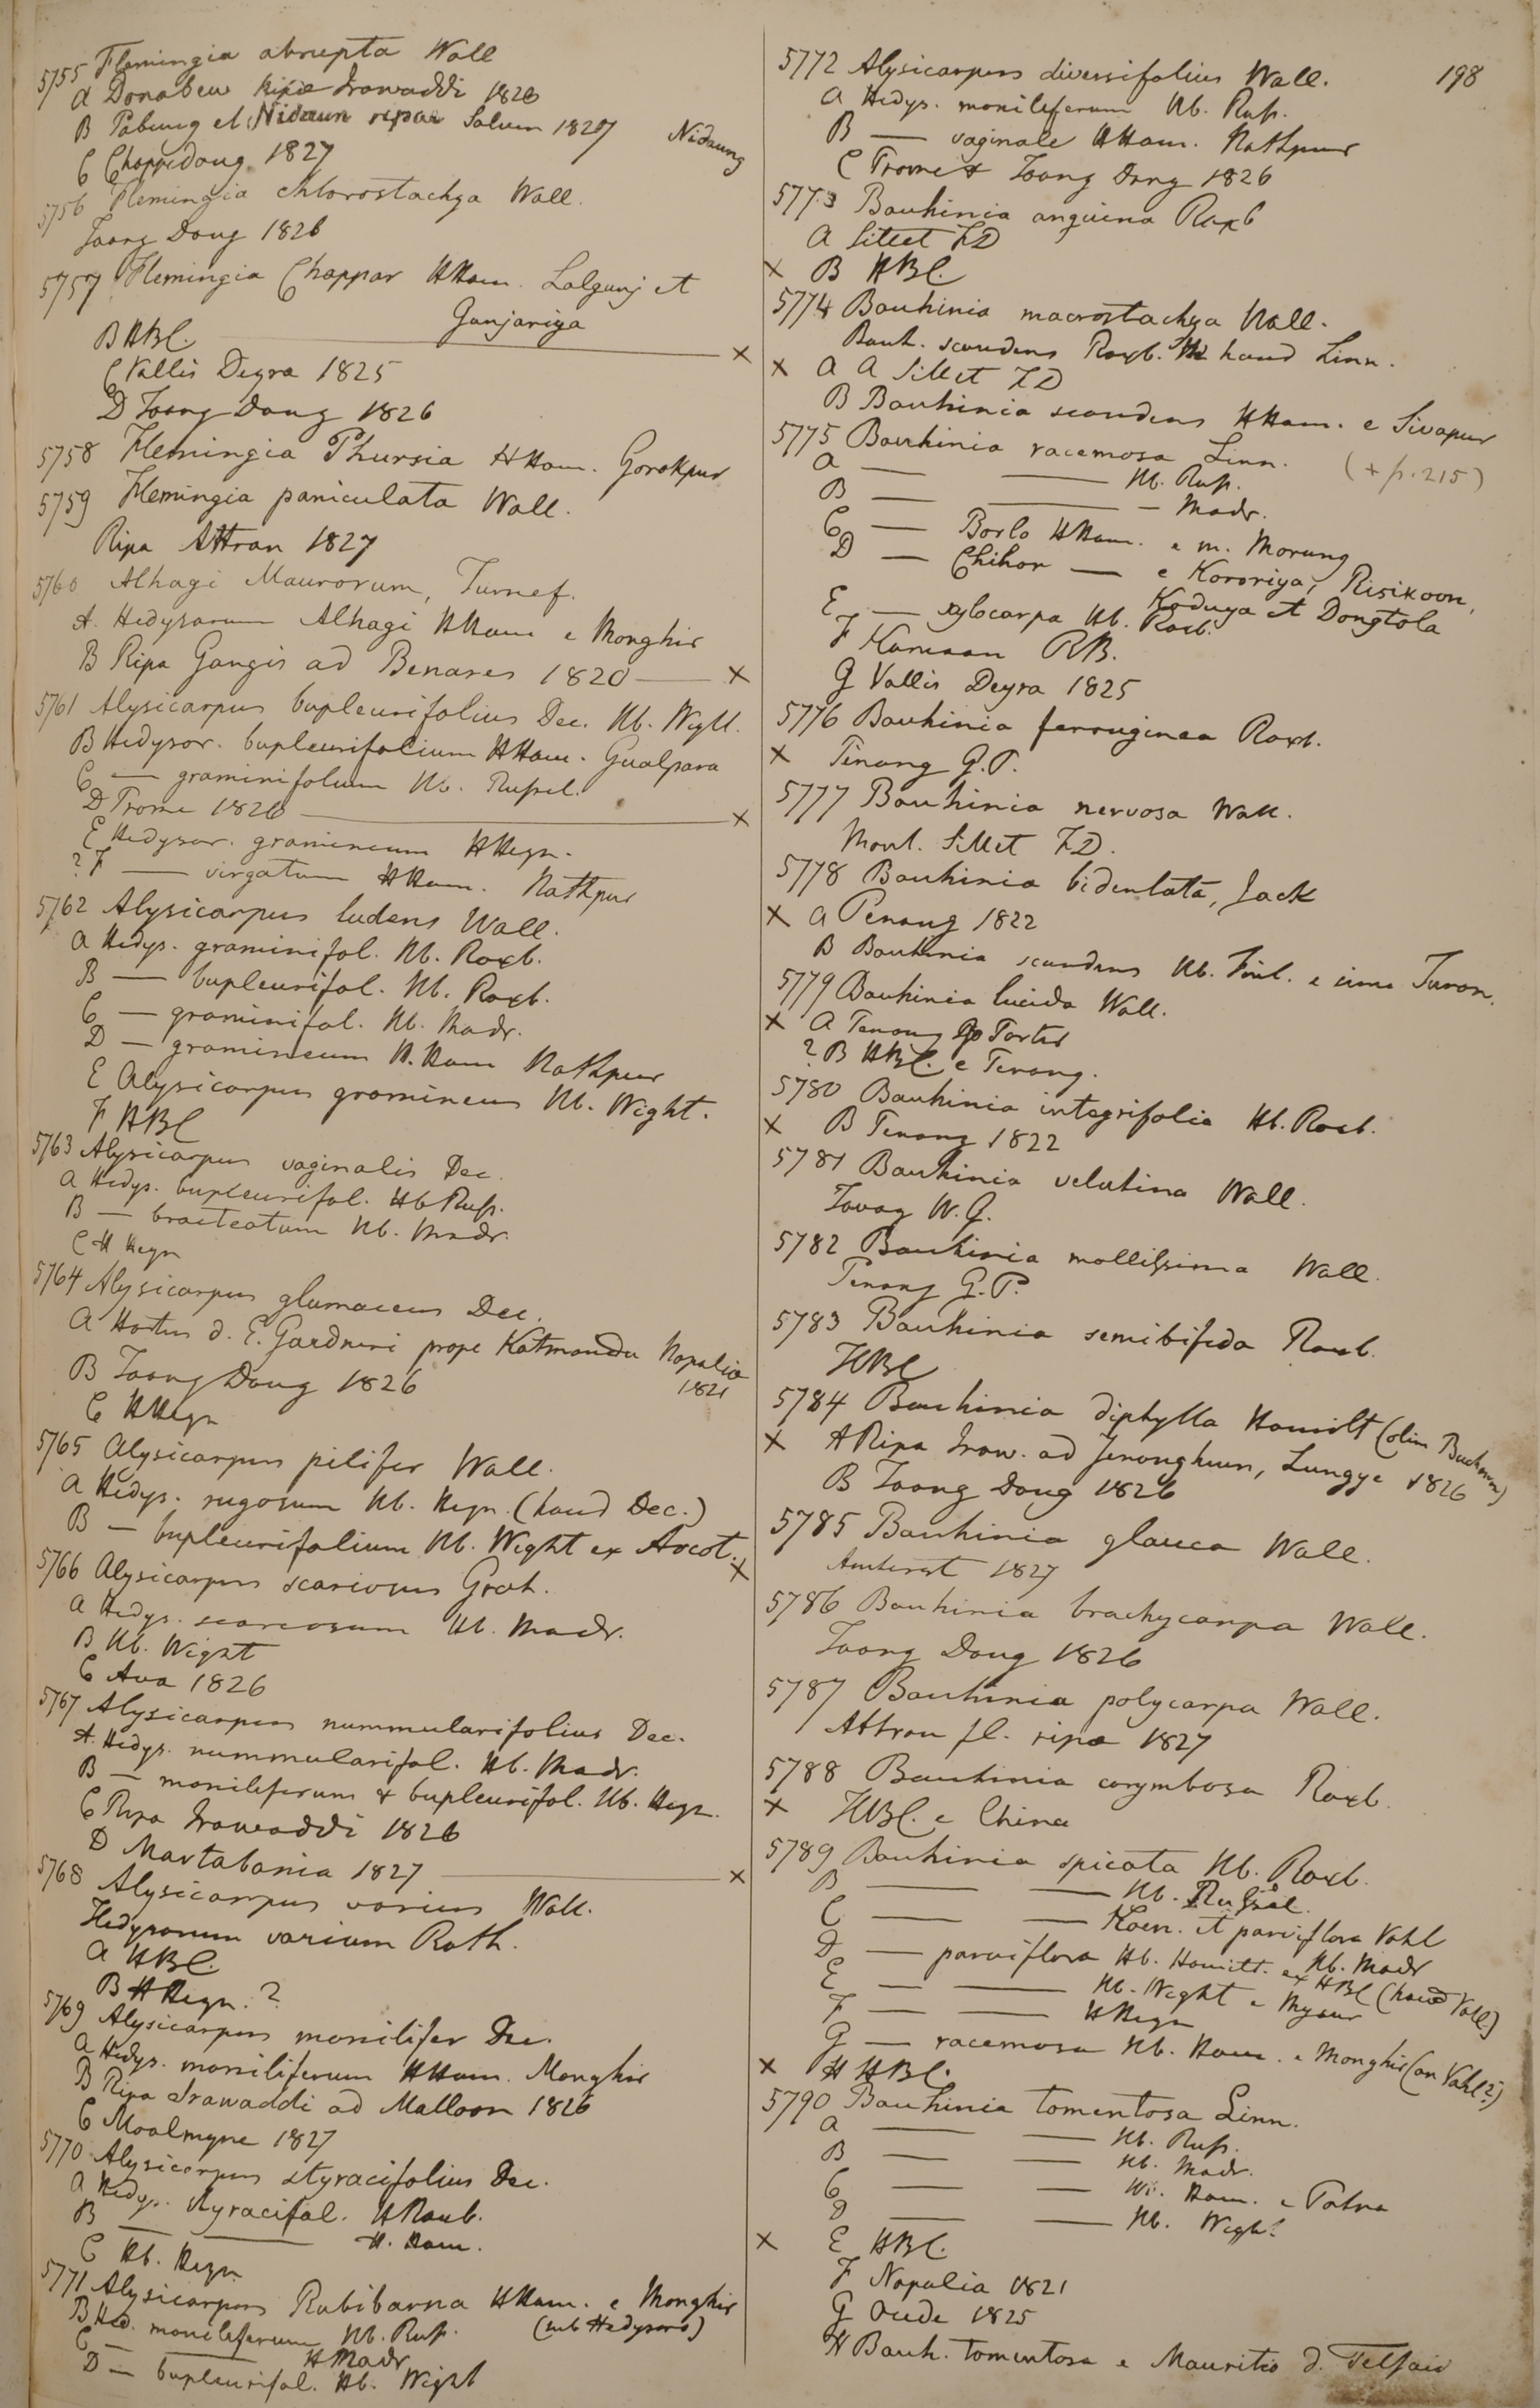 5755 Flemingia abrupta Wall
A Donabew Ripa Irawaddi 1826
B Pabung et Nidaun ripae Saluen 1827 Nidaung
C Chappedong 1827
5756 Flemingia chlorostachya Wall.
Taong Dong 1826
5757 Flemingia Chappar HHam. Lalgunj et
Gunjariya
B HBC. ——— ×
C Vallis Deyra 1825
D Taong Dong 1826
5758 Flemingia Phursia HHam. Gorakpur
5759 Flemingia paniculata Wall.
Ripa Attran 1827
5760 Alhagi Maurorum, Turnef.
A. Hedysarum Alhagi HHam e Monghir
B Ripa Gangis ad Benares 1820 — ×
5761 Alysicarpus bupleurifolius Dec. Hb. Wight.
B Hedysar. bupleurifolium HHam. Gualpara
C — graminifolium Hb. Russel.
D Prome 1826 ——— ×
E Hedysar. gramineum HHeyn.
? F — virgatum HHam. Nathpur
5762 Alysicarpus ludens Wall.
A Hedys. graminifol. Hb. Roxb.
B — bupleurifol. Hb. Roxb.
C — graminifol. Hb. Madr.
D — gramineum H. Ham Nathpur
E Alysicarpus gramineus Hb. Wight.
F HBC
5763 Alysicarpus vaginalis Dec.
A Hedys. bupleurifol. Hb Russ.
B — bracteatum Hb. Madr.
C H Heyn
5764 Alysicarpus glumaceus Dec.
A Hortus d. E. Gardneri prope Katmandu Napalia
1821
B Taong Dong 1826
C HHeyn
5765 Alysicarpus pilifer Wall.
A Hedys. rugosum Hb. Heyn. (haud Dec.)
B — bupleurifolium Hb. Wight ex Arcot. ×
5766 Alysicarpus scariosus Grah.
A Hedys. scariosum Hb. Madr.
B Hb. Wight
C Ava 1826
5767 Alysicarpus nummularifolius Dec.
A. Hedys. nummularifol. Hb. Madr.
B — moniliferum & bupleurifol. Hb. Heyn.
C Ripa Irawaddi 1826
D Martabania 1827 ——— ×
5768 Alysicarpus varius Wall.
Hedysarum varium Roth.
A HBC.
B H Heyn. ?
5769 Alysicarpus monilifer Dec.
A Hedys. moniliferum HHam. Monghir
B Ripa Irawaddi ad Malloon 1826
C Moalmyne 1827
5770 Alysicarpus styracifolius Dec.
A Hedys. styracifol. HRoxb.
B — —— H. Ham.
C Hb. Heyn
5771 Alysicarpus Rubibarna HHam. e Monghir
(sub Hedysaro)
B Hed. moniliferum Hb. Russ.
C — —— H Madr
D — bupleurifol. Hb. Wight
198
5772 Alysicarpus diversifolius Wall.
A Hedys. moniliferum Hb. Russ.
B — vaginale HHam. Nathpur
C Prome & Taong Dong 1826
5773 Bauhinia anguina Roxb
A Sillet FD
× B HBC.
5774 Bauhinia macrostachya Wall.
Bauh. scandens Roxb. haud Linn.
× A A Sillet FD
B Bauhinia scandens HHam. e Sivapur
5775 Bauhinia racemosa Linn. (+ p. 215)
A — —— Hb. Russ.
B — —— — Madr.
C — Borlo HHam. e m. Morung
D — Chihor — e Kororiya, Risikoon,
Koduya et Dongtola
E — xylocarpa Hb. Roxb.
F Kamaon RB.
G Vallis Deyra 1825
5776 Bauhinia ferruginea Roxb.
× Pinang G.P.
5777 Bauhinia nervosa Wall.
Mont. Sillet FD.
5778 Bauhinia bidentata, Jack
× A Penang 1822
B Bauhinia scandens Hb. Finl. e sinu Turon.
5779 Bauhinia lucida Wall.
× A Penang Go Porter
? B HBC. e Penang.
5780 Bauhinia integrifolia Hb. Roxb.
× B Penang 1822
5781 Bauhinia velutina Wall.
Tavoy W. G.
5782 Bauhinia mollissima Wall.
Penang G. P.
5783 Bauhinia semibifida Roxb.
HBC
5784 Bauhinia diphylla Hamilt (olim Buchanan)
× A Ripa Iraw. ad Jenanghuen, Lungye 1826
B Taong Dong 1826
5785 Bauhinia glauca Wall.
Amherst 1827
5786 Bauhinia brachycarpa Wall.
Taong Dong 1826
5787 Bauhinia polycarpa Wall.
Attran fl. ripa 1827
5788 Bauhinia corymbosa Roxb.
× HBC. e China
5789 Bauhinia spicata Hb. Roxb.
B —— —— Hb. Russel.
C —— —— Koen. et parviflora Vahl
Hb. Madr
D — parviflora Hb. Hamilt. ex HBC (haud Vall)
E — —— Hb. Wight e Mysur
F — —— HHeyn
G — racemosa Hb. Ham. e Monghir (an Vahl?)
× H HBC.
5790 Bauhinia tomentosa Linn.
A —— —— Hb. Russ.
B —— —— Hb. Madr.
C —— —— Hb. Ham. e Patna
D —— —— Hb. Wight
× E HBC.
F Napalia 1821
G Oude 1825
H Bauh. tomentosa e Mauritio d. Telfair